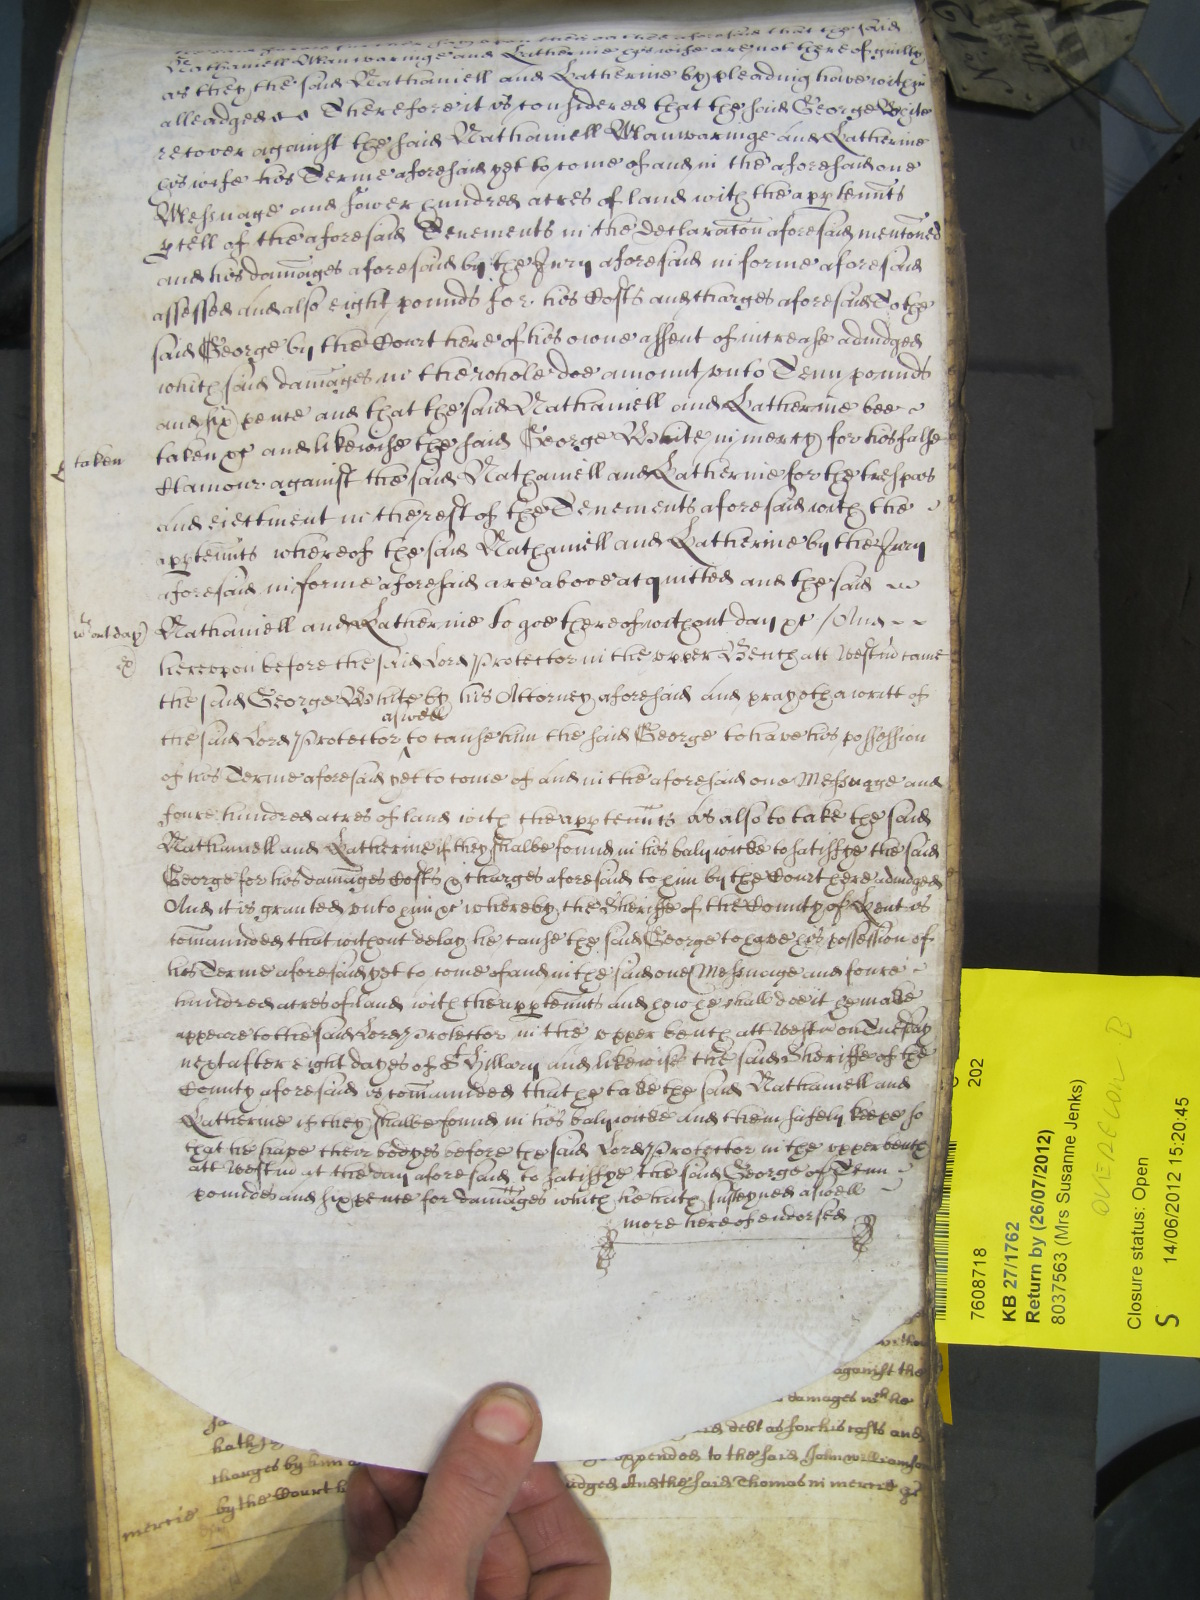 that the said
Nathaniell Manwaringe and Katherine his wife are not thereof guilty
as they the said Nathaniell and Katherine by pleadinge have within
alleadged Therefore it is considered that the said George White
recover against the said Nathaniell Manwaringe and Katherine
his wife his Terme aforesaid yet to come of and in the aforesaid one
Messuage and fower hundred acres of land with the apptennts
pcell of the aforesaid Tenements in the declaracon aforesaid mentoned
and his damages aforesaid by the Jury aforesaid in forme aforesaid
assessed and also eight pounds for his Costs and charges aforesaid To the
said George by the Court here of his owne assent of increase adiudged
which said damages in the whole doe amount unto Tenn pounds
and six pence and that the said Nathaniell and Katherine bee
taken
taken &c and likewise the said George White in mercy for his false
Clamour against the said Nathaniell and Katherine for the trespas
and eiectment in the rest of the Tenements aforesaid with the
apptennts whereof the said Nathaniell and Katherine by the Jury
aforesaid in forme aforesaid are above acquitted and the said
wthout day
&c
Nathaniell and Katherine to goe thereof without day &c / And
hereupon before the said Lord Protector in the upper Bench att Westm came
the said George White by his Attorney aforesaid and prayeth a writt of
aswell
the said Lord Protector to cause him the said George to have his possession
of his Terme aforesaid yet to come of and in the aforesaid one Messuage and
foure hundred acres of land with the apptennts as also to take the said
Nathaniell and Katherine if they shalbe found in his balywicke to satisfye the said
George for his damages Costs & charges aforesaid to him by the Court here adiudged
And it is granted unto him &c whereby the Sheriffe of the County of Kent is
comanded that without delay he cause the said George to have his possession of
his Terme aforesaid yet to come of and in the said one Messuage and foure
hundred acres of land with the apptennts and how he shall doe it he make
appeare to the said Lord Protector in the upper bench att Westm on Tuesday
next after eight dayes of St Hillary and likewise the said Sheriffe of the
County aforesaid is comanded that he take the said Nathaniell and
Katherine if they shalbe found in his balywicke and them safely keepe so
that he have their bodyes before the said Lord Protector in the upper bench
att Westm at the day aforesaid to satisfye the said George of Tenn
poundes and six pence for damages which he hath susteyned aswell
more hereof endorsed
against the
damages wch he
hath
debt as for his costs and
charges by him
appended to the said John Williamson
mercie
by the Court
And the said Thomas in mercie &c
No 12
202
7608718
KB 27/1762
Return by (26/07/2012)
8037563 (Mrs Susanne Jenks)
Closure status: Open
S
14/06/2012 15:20:45